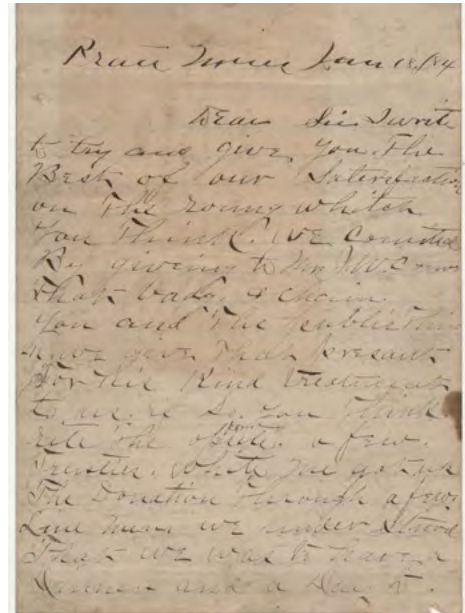 Pratt Mines Jan 18/84
Dear Sir I write
to try and give You the
Best of our Satisfaction
on The rong whitch
You Think. We Comited
By giving to Mr J.W.C
That Watch & Chain
You and The public Think
we give That presant
For his Kind treatment
to us so You Think
rite The a few.
Trusties. White Me got up
The Donation Through a few
Line Men we under Stood
That we was to have a
Dinner and a Day